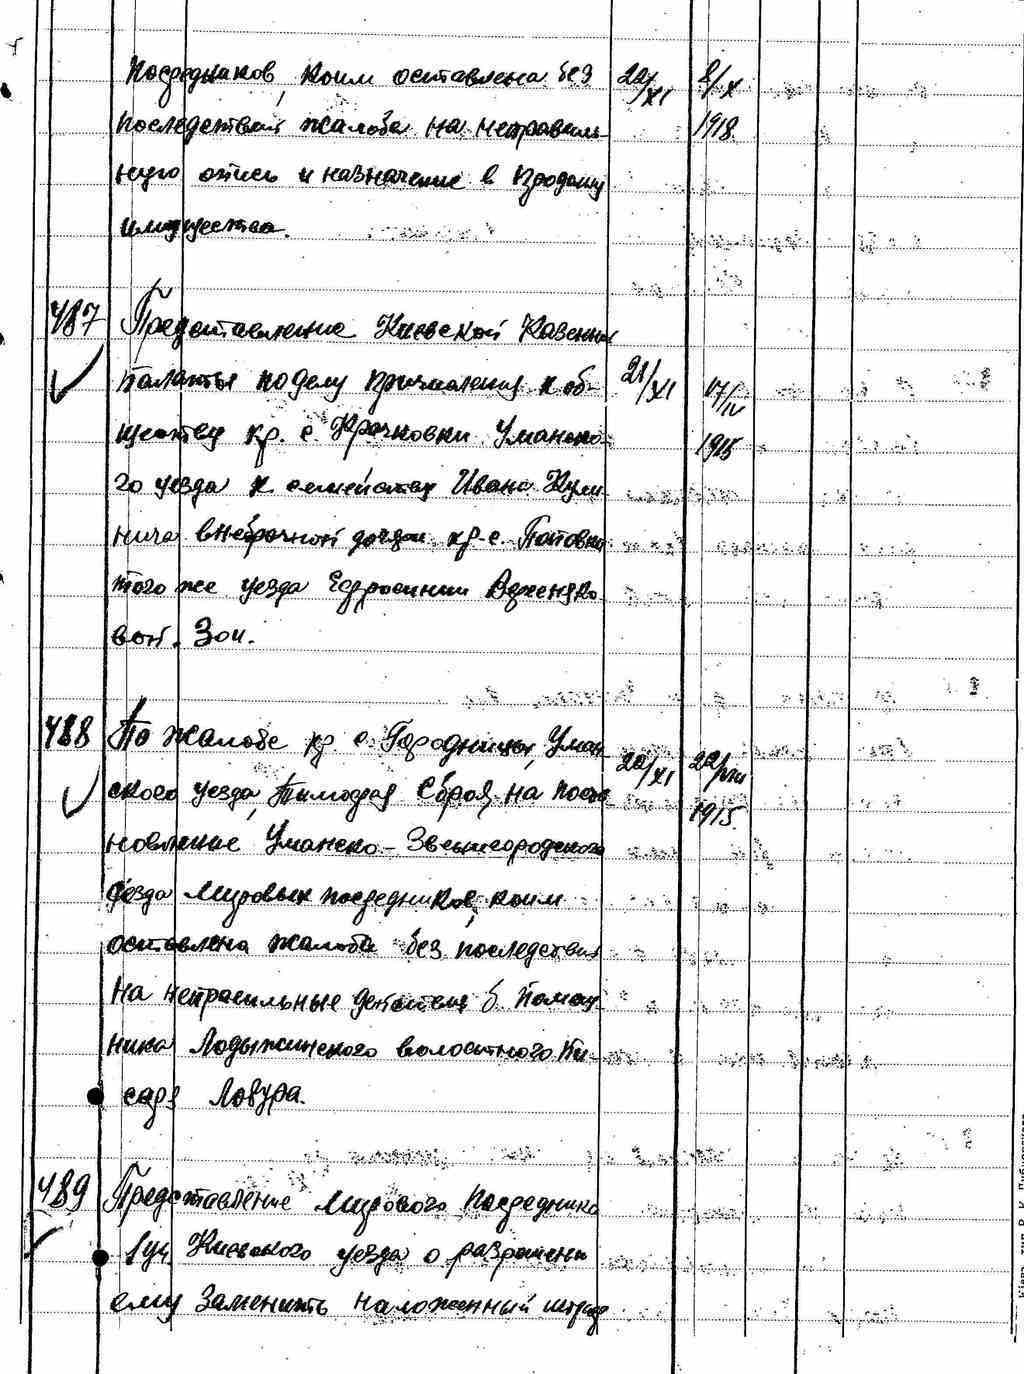 Посредников, коим оставлена без 22/XI 8/X
последствий жалоба на неправиль- 1918.
ную опись и назначение в продажу
имущества.
487 Представление Киевской Казенной
палаты по делу причисления к об- 21/XI 17/IV
ществу кр. с. Крачковки Уманско- 1915
го уезда к семейству Ивана Кули-
нича внебрачной дочери кр-с. Поповки
того же уезда Ефросинии
вой. Зои.
488 По жалобе кр. с. Городницы, Уман- 20/XI 22/VIII
ского уезда, Тимофея Сброя, на поста- 1915.
новление Уманско-Звенигородского
съезда Мировых посредников, коим
оставлена жалоба без последствий
на неправильные действия б. помощ-
ника Ладыжинского волостного Пи-
саря Ловура.
489 Представление Мирового Посредника
1 уч. Киевского уезда о разрешении
ему заменить наложенный штраф